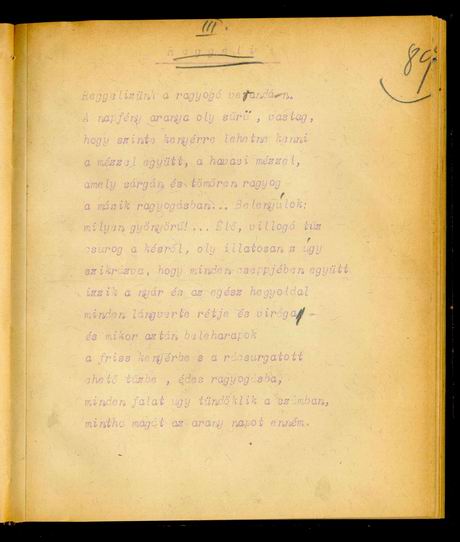 III.
Reggeli
89
Reggelizünk a ragyogó verandán.
A napfény aranya oly sürü , vastag,
hogy szinte kenyérre lehetne kenni
a mézzel együtt, a havasi mézzel,
amely sárgán és tömören ragyog
a másik ragyogásban... Belenyúlok:
milyen gyönyörü!... Élő, villogó tüz
csurog a késről, oly illatosan s úgy
szikrázva, hogy minden cseppjében együtt
izzik a nyár és az egész hegyoldal
minden lángverte rétje és virága -
és mikor aztán beleharapok
a friss kenyérbe s a rácsurgatott
ehető tüzbe , édes ragyogásba,
minden falat ugy tündöklik a számban,
mintha magát az arany napot enném.